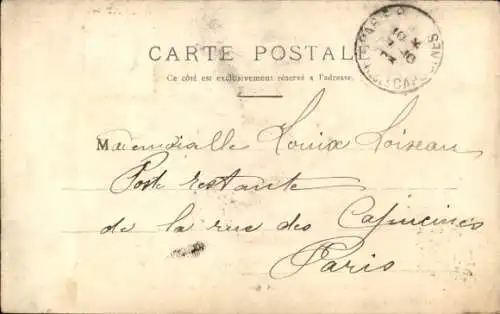 CARTE POSTALE
Ce côté est exclusivement réservé à l'adresse.
Mademoialle Louix Loiseau
Poste restante
de la rue des Capucines
Paris